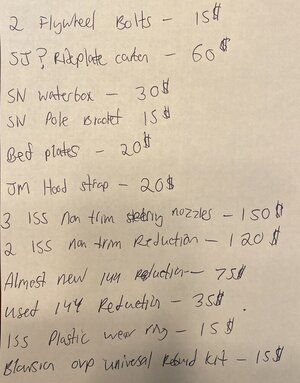 2 Flywheel Bolts - 15$
SJ? Rideplate carbon - 60$
SN waterbox - 30$
SN Pole Bracket 15$
Bed plates - 20$
JM Hood strap - 20$
3 155 non trim steering nozzles - 150$
2 155 non trim Reduction - 120$
Almost new 144 Reduction - 75$
used 144 Reduction - 35$
155 Plastic wear ring - 15$
ovp universal Rebuild kit - 15$